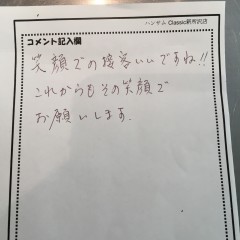 ハンサム Classic新所沢店
コメント記入欄
笑顔での接客いいですね!!
これからもその笑顔で
お願いします.